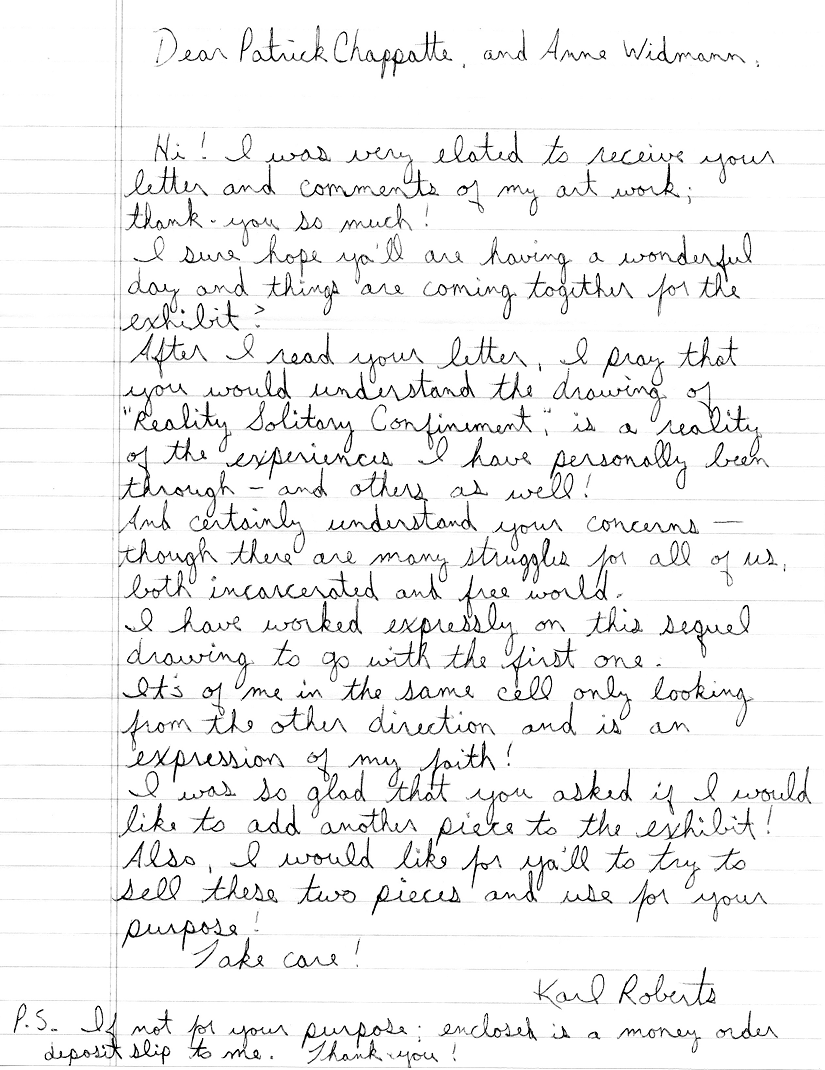 Dear Patrick Chappatte, and Anne Widmann,
Hi! I was very elated to receive your
letter and comments of my art work;
thank-you so much!
I sure hope ya'll are having a wonderful
day and things are coming together for the
exhibit?
After I read your letter, I pray that
you would understand the drawing of
"Reality Solitary Confinement", is a reality
of the experiences I have personally been
through - and others as well!
And certainly understand your concerns —
though there are many struggles for all of us,
both incarcerated and free world.
I have worked expressly on this sequel
drawing to go with the first one.
It's of me in the same cell only looking
from the other direction and is an
expression of my faith!
I was so glad that you asked if I would
like to add another piece to the exhibit!
Also, I would like for ya'll to try to
sell these two pieces and use for your
purpose!
Take care!
Karl Roberts
P.S. If not for your purpose; enclosed is a money order
deposit slip to me. Thank-you!